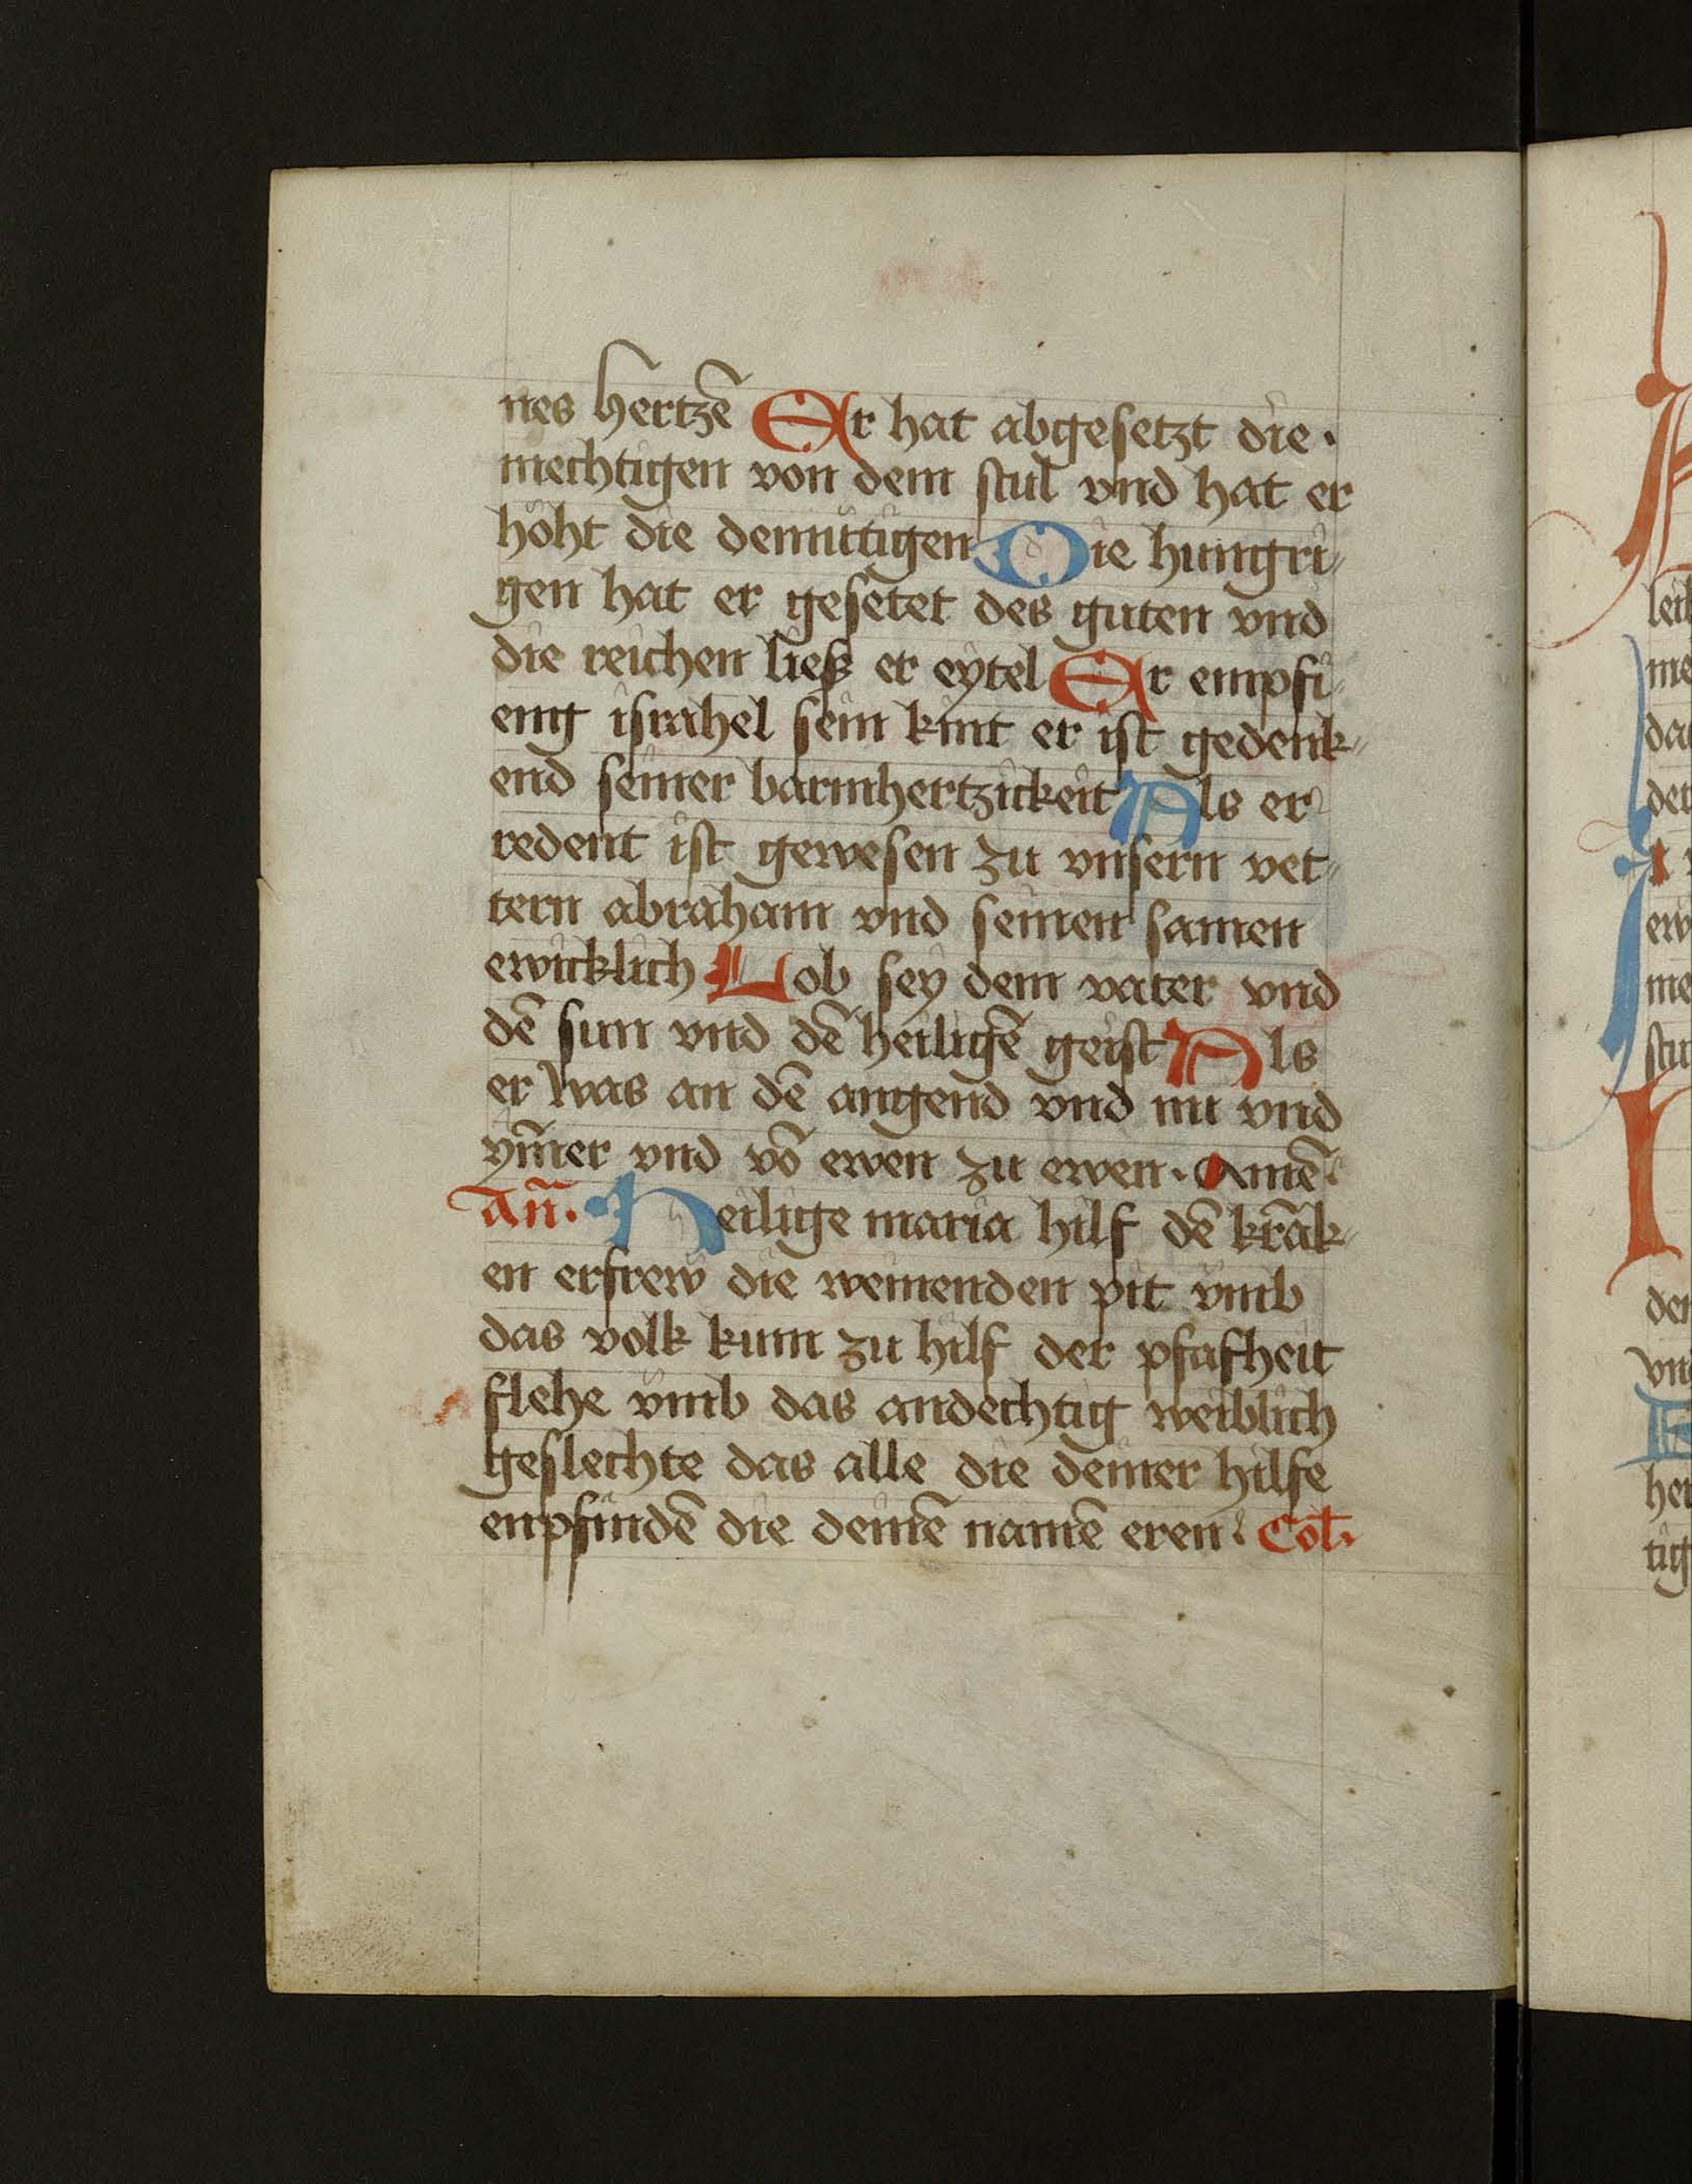 nes hertzē Er hat abgesetzt die·
mechtigen von dem stul vnd hat er
höht die demüttigen Die hungri-
gen hat er gesetet des guten vnd
die reichen lieſz er eytel Er empfi-
eng israhel sein kint er ist gedenk-
end seiner barmhertzickeit Als er
redent ist gewesen zu vnsern vet-
tern abraham vnd seinen samen
ewicklich Lob sey dem vater vnd
dē sun vnd dē heiligē geist Als
er was an dē angend vnd nu vnd
ym̄er vnd vō ewen zu ewen· Amē
An̄· Heilige maria hilf dē krāk-
en erfrew die weinenden pit vmb
das volk kum zu hilf der pfafheit
flehe vmb das andechtig weiblich
geslechte das alle die deiner hilfe
enpfindē die deinē namē eren· Col·
leib
me
da
det
ew
me
stu
den
vn
E
her
tig